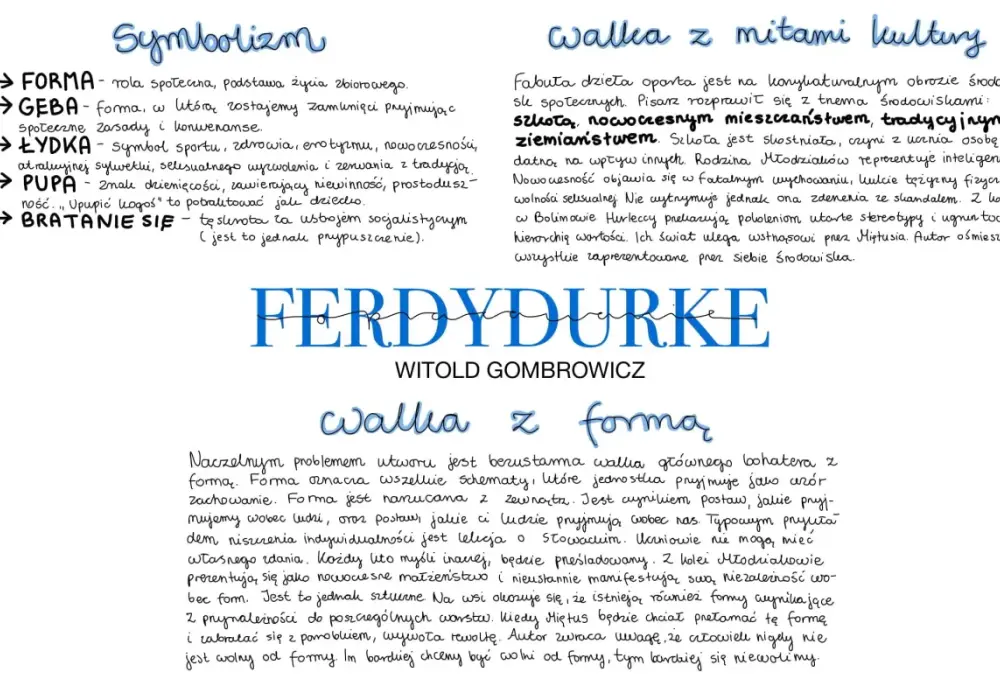 Symbolizm
→ FORMA - rola społeczna, podstawa życia zbiorowego.
→ GĘBA - forma, w którą zostajemy zamknięci przyjmując
społeczne zasady i konwenanse.
→ ŁYDKA - symbol sportu, zdrowia, erotyzmu, nowoczesności,
atrakcyjnej sylwetki, seksualnego wyzwolenia i zerwania z tradycją.
→ PUPA - znak dziecięcości, zawierający niewinność, prostodusz-
ność. „Upupić kogoś" to potraktować jak dziecko.
→ BRATANIE SIĘ - tęsknota za ustrojem socjalistycznym
(jest to jednak przypuszczenie).
walka z mitami kultury
Fabuła dzieła oparta jest na karykaturalnym obrazie środo
sk społecznych. Pisarz rozprawił się z trzema środowiskami:
szkołą, nowoczesnym mieszczaństwem, tradycyjnym
ziemiaństwem. Szkoła jest skostniała, czyni z ucznia osobę
datną na wpływ innych. Rodzina Młodziaków reprezentuje inteligen
Nowoczesność objawia się w fatalnym wychowaniu, kulcie tężyzny fizycz
wolności seksualnej. Nie wytrzymuje jednak ona zderzenia ze skandalem. Z ko
w Bolimowie Hurleccy przekazują pokoleniom utarte stereotypy i ugruntow
hierarchię wartości. Ich świat ulega wstrząsowi przez Miętusia. Autor ośmiesz
wszystkie zaprezentowane przez siebie środowiska.
FERDYDURKE
WITOLD GOMBROWICZ
walka z formą
Naczelnym problemem utworu jest bezustanna walka głównego bohatera z
formą. Forma oznacza wszelkie schematy, które jednostka przyjmuje jako wzór
zachowanie. Forma jest narzucana z zewnątrz. Jest wynikiem postaw, jakie przyj-
mujemy wobec ludzi, oraz postaw, jakie ci ludzie przyjmują wobec nas. Typowym przykła-
dem niszczenia indywidualności jest lekcja o Słowackim. Uczniowie nie mogą mieć
własnego zdania. Każdy kto myśli inaczej, będzie prześladowany. Z kolei Młodziakowie
prezentują się jako nowoczesne małżeństwo i nieustannie manifestują swą niezależność wo-
bec form. Jest to jednak sztuczne. Na wsi okazuje się, że istnieją również formy wynikające
z przynależności do poszczególnych warstw. Kiedy Miętus będzie chciał przełamać tę formę
i zabratać się z parobkiem, wywoła rewoltę. Autor zwraca uwagę, że człowiek nigdy nie
jest wolny od formy. Im bardziej chcemy być wolni od formy, tym bardziej się niewolimy.